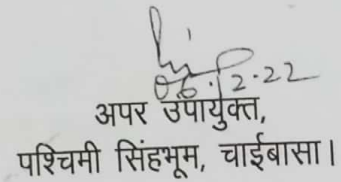 06.12.22
अपर उपायुक्त,
पश्चिमी सिंहभूम, चाईबासा।